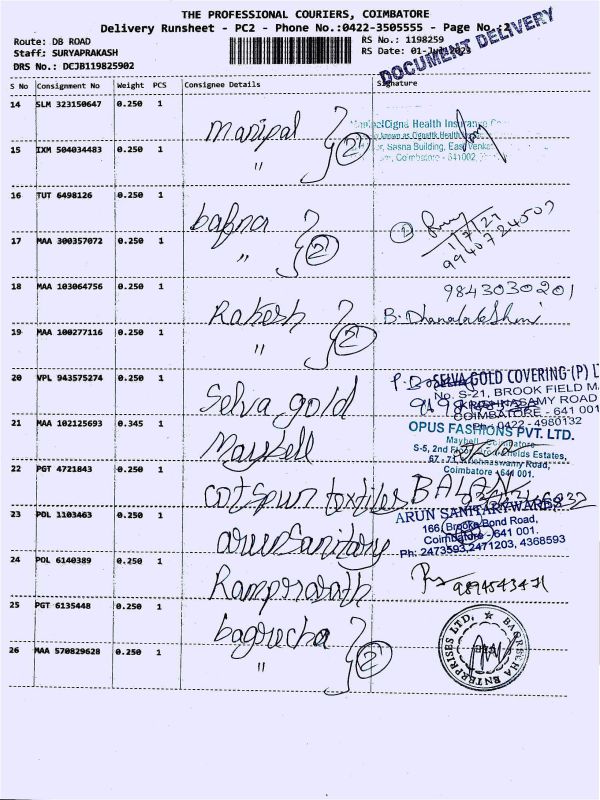 THE PROFESSIONAL COURIERS, COIMBATORE
Delivery Runsheet - PC2 - Phone No.:0422-3505555 - Page No.:2
DOCUMENT DELIVERY
Route: DB ROAD
Staff: SURYAPRAKASH
DRS No.: DCJB119825902
RS No.: 1198259
RS Date: 01-Jul
S No Consignment No Weight PCS Consignee Details Signature
14 SLM 323150647 0.250 1 Manipal
15 IXM 504034483 0.250 1 " 2
Cigna Health Insurance
known as Cigna Health
Sasna Building, East
Coimbatore - 641002
16 TUT 6498126 0.250 1 bafna
17 MAA 300357072 0.250 1 " 2
1
1/7/23
18 MAA 103064756 0.250 1 Rakesh
19 MAA 100277116 0.250 1 " 2
9843030201
B. Dhanalakshmi
20 VPL 943575274 0.250 1 Selva gold
SELVA GOLD COVERING (P) L
No. S-21, BROOK FIELD MA
KRISHNASAMY ROAD
COIMBATORE - 641 001
Ph : 0422 - 4980132
21 MAA 102125693 0.345 1 Maybell
OPUS FASHIONS PVT. LTD.
Maybell, Coimbatore
S-5, 2nd Floor, Estates,
Krishnaswamy Road,
Coimbatore - 641 001.
22 PGT 4721843 0.250 1 cotspun textiles
BALAN
23 POL 1103463 0.250 1 arunsanitary
ARUN SANITARYWARES
166, Brooke Bond Road,
Coimbatore - 641 001.
Ph: 2473593,2471203, 4368593
24 POL 6140389 0.250 1 Ramprasath
25 PGT 6135448 0.250 1 bagrecha
26 MAA 570829628 0.250 1 " 2
BAGRECHA ENTERPRISES LTD.